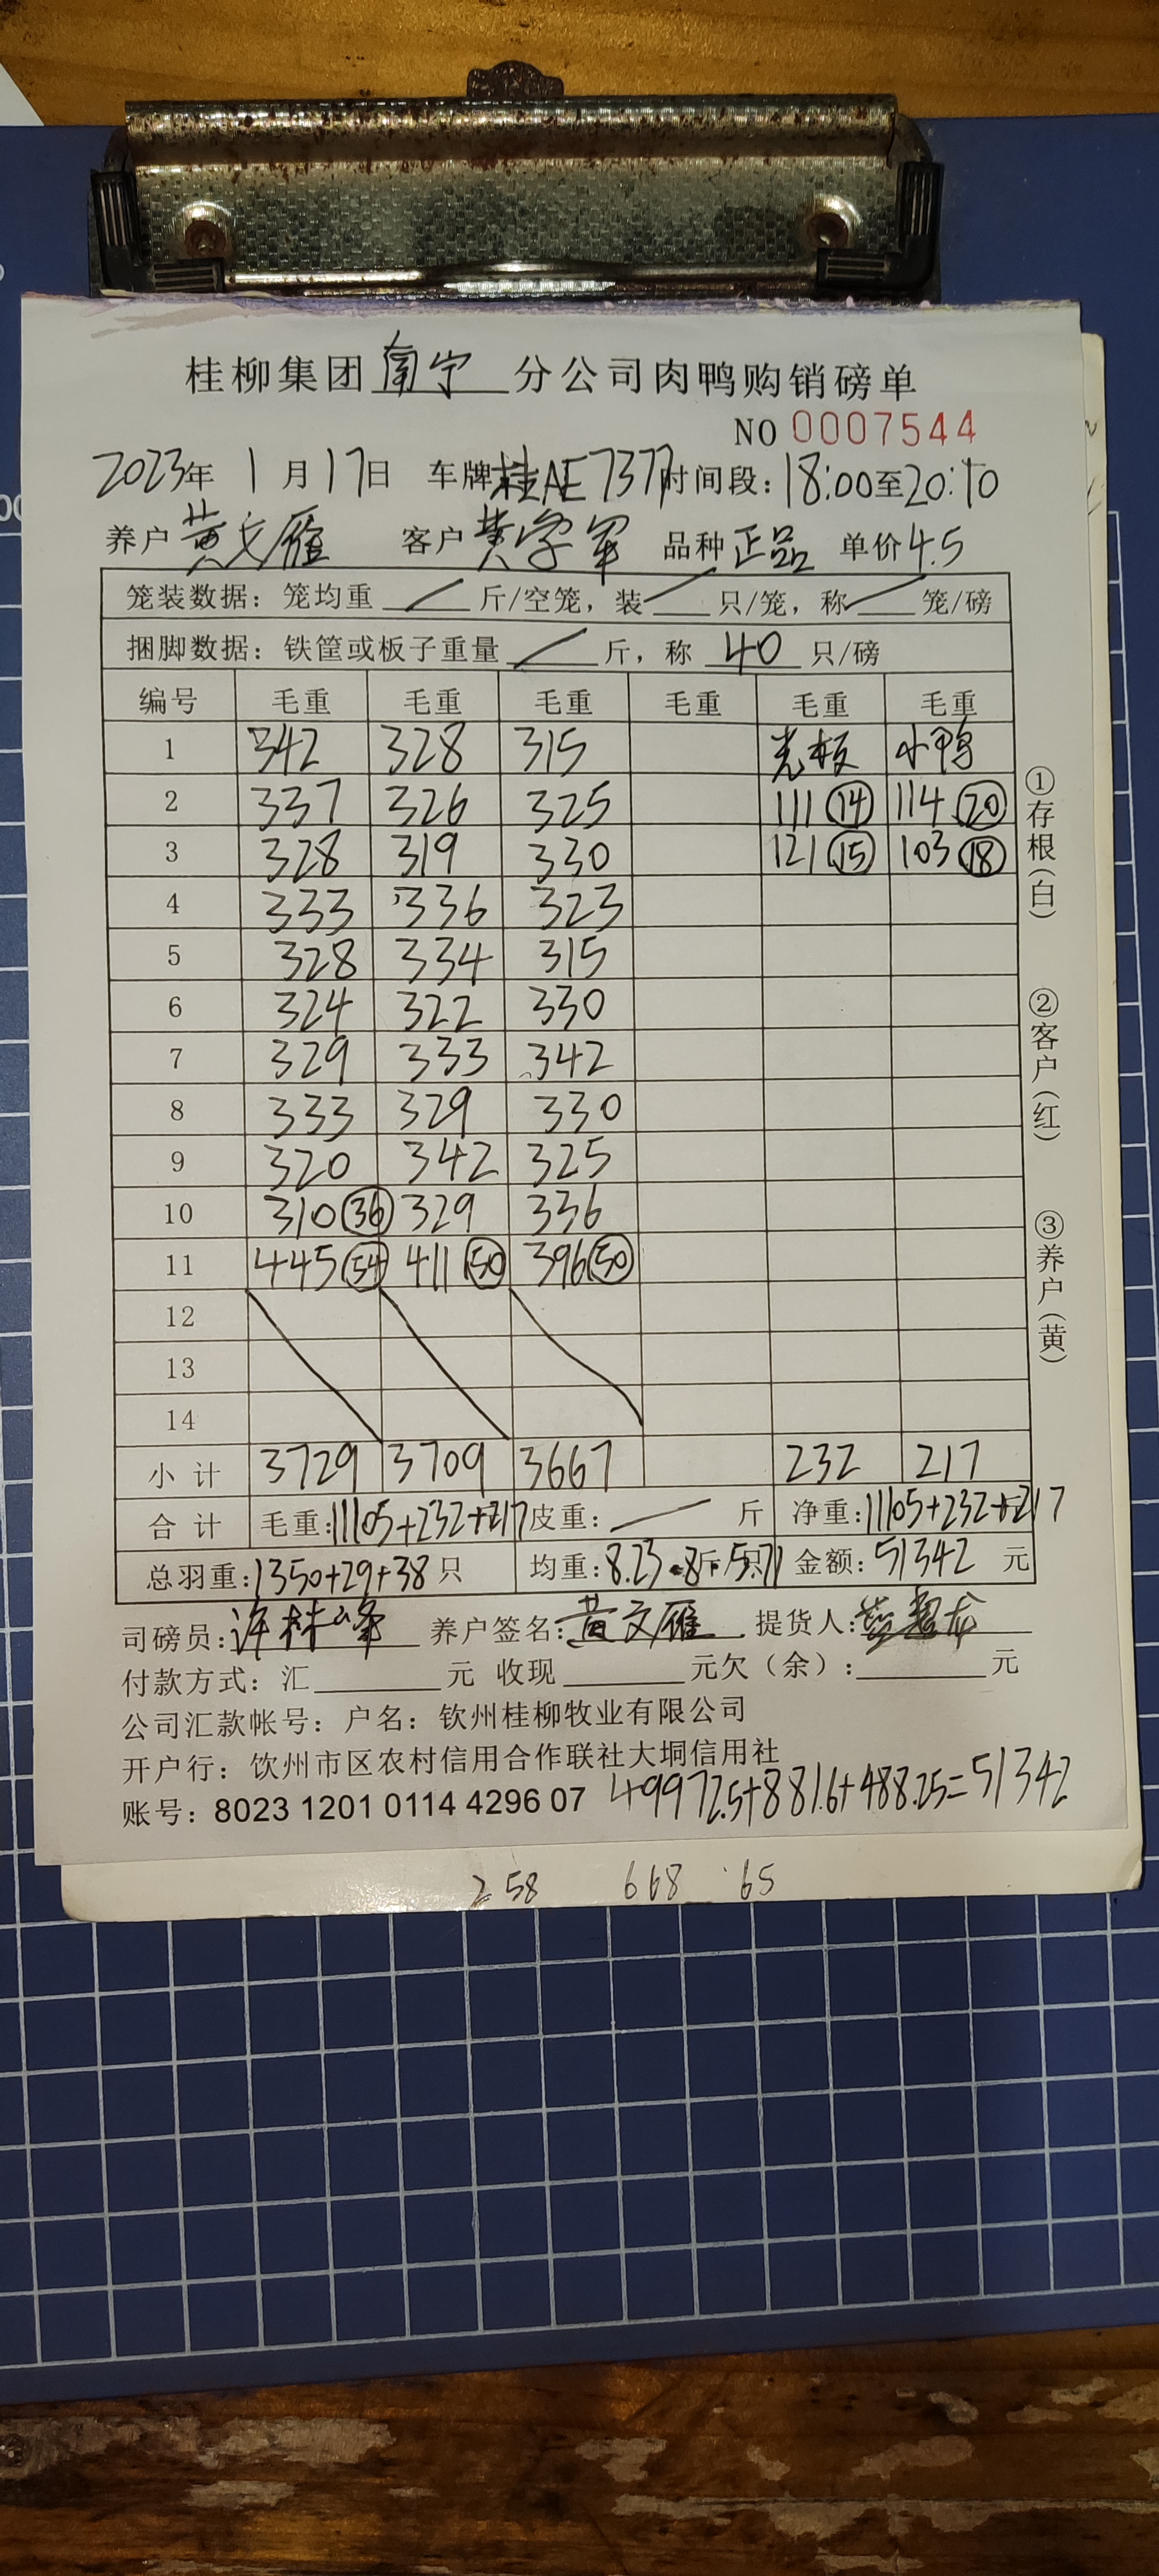 桂柳集团南宁分公司肉鸭购销磅单
NO 0007544
2023年 1月17日 车牌桂AE7377时间段：18:00至20:10
养户 黄文雁 客户 黄学军 品种 正品 单价4.5
笼装数据：笼均重 / 斤/空笼，装 / 只/笼，称 / 笼/磅
捆脚数据：铁筐或板子重量 / 斤，称 40 只/磅
编号 毛重 毛重 毛重 毛重 毛重 毛重
1 342 328 315 光板 小鸭
2 337 326 325 111 14 114 20
3 328 319 330 121 15 103 18
4 333 336 323
5 328 334 315
6 324 322 330
7 329 333 342
8 333 329 330
9 320 342 325
10 310 36 329 336
11 445 54 411 50 396 50
12
13
14
小计 3729 3709 3667 232 217
合计 毛重：11105+232+217 皮重： / 斤 净重：11105+232+217
总羽重：1350+29+38只 均重：8.23 8 斤/只 5.71 金额：51342 元
司磅员：许林峰 养户签名：黄文雁 提货人：
付款方式：汇 元 收现 元欠（余）： 元
公司汇款帐号：户名：钦州桂柳牧业有限公司
开户行：饮州市区农村信用合作联社大垌信用社
账号：8023 1201 0114 4296 07 49972.5+881.6+488.25=51342
258 668 65
①存根（白）
②客户（红）
③养户（黄）